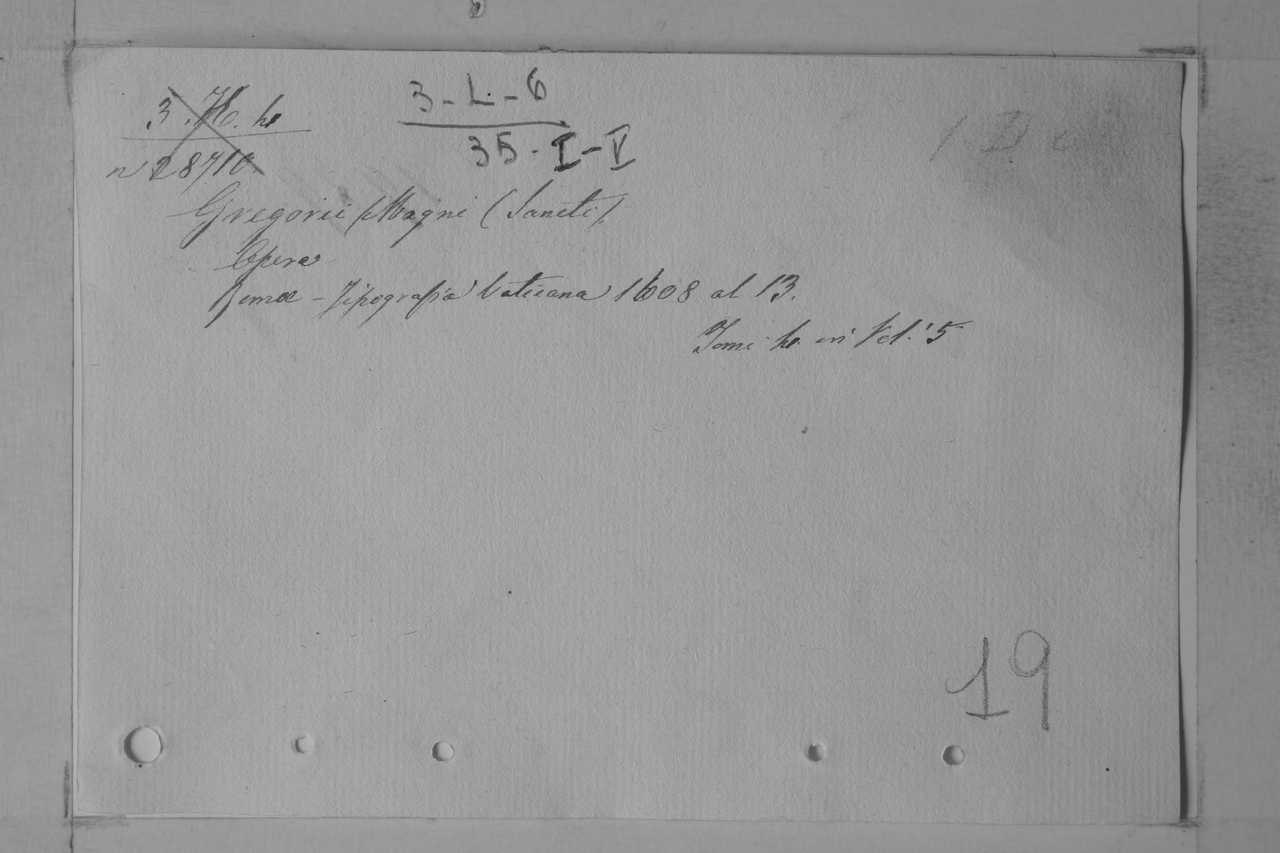 3. K. 4
n 28710
3-L-6
35-I-V
Gregorii Magni (Sancti)
Opera
Romæ - Tipografia Vaticana 1608 al 13.
Tomi 4. in Vol. 5
19